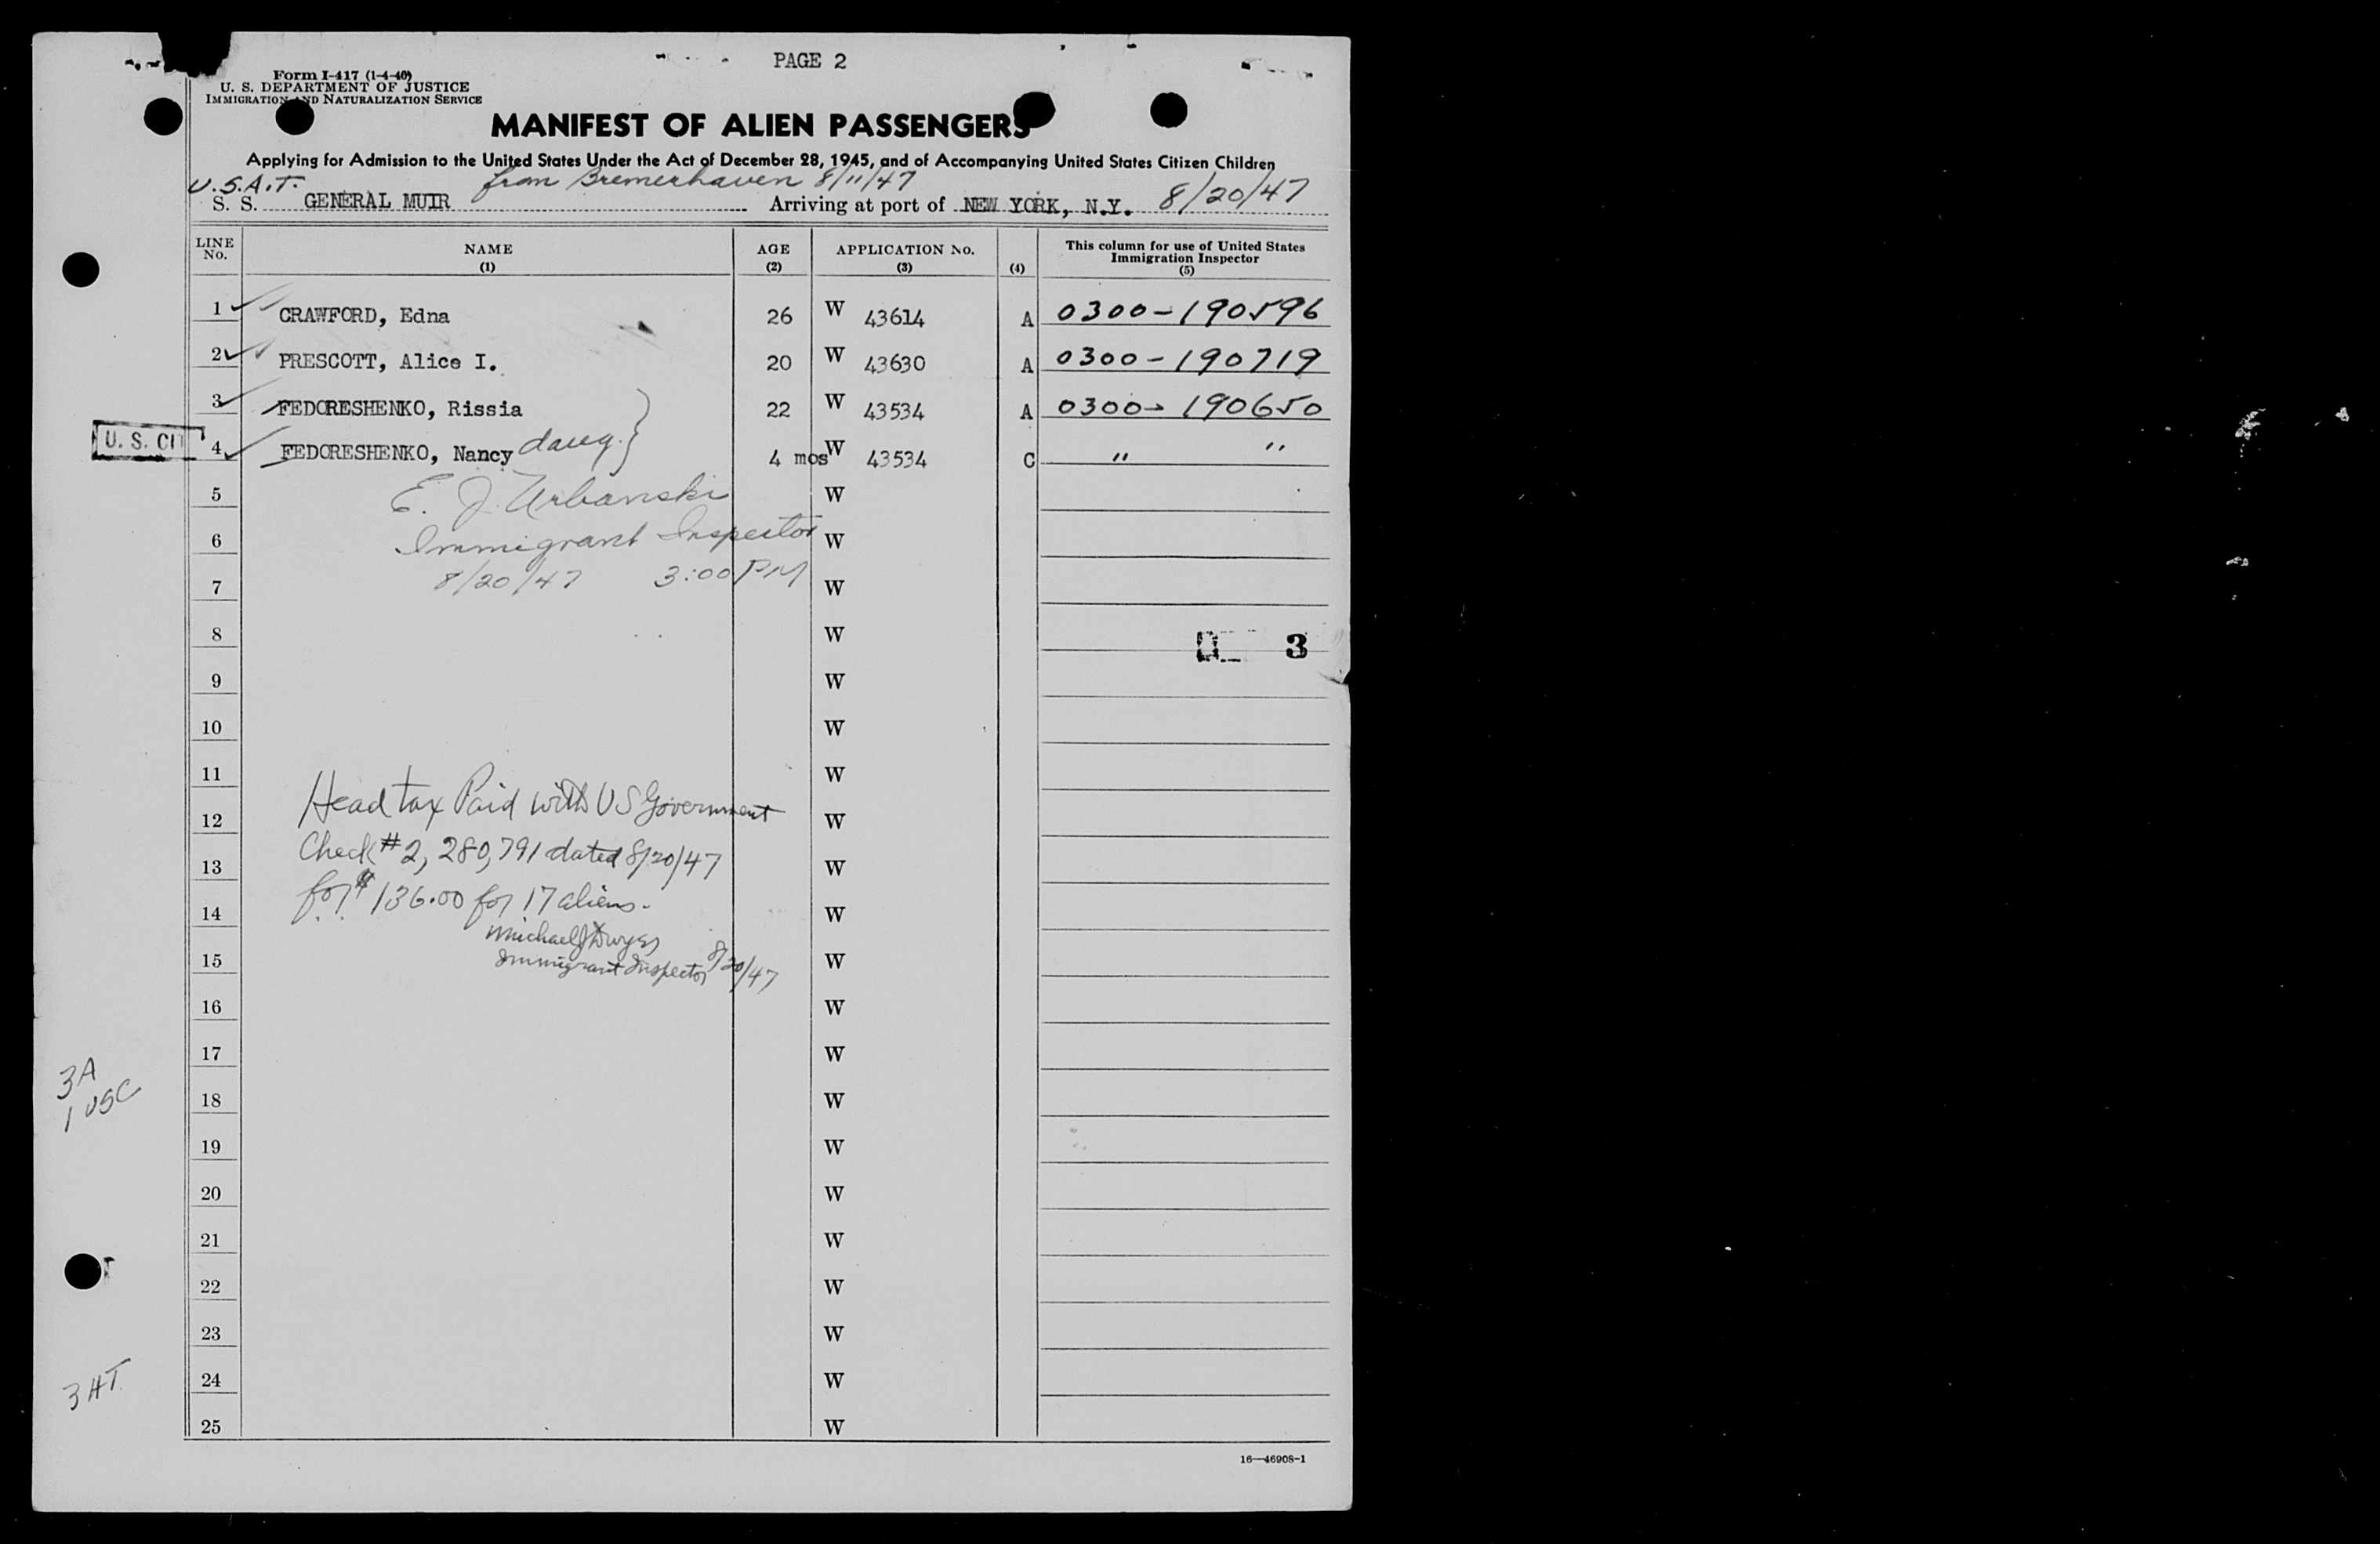 PAGE 2
Form I-417 (1-4-46)
U. S. DEPARTMENT OF JUSTICE
IMMIGRATION AND NATURALIZATION SERVICE
MANIFEST OF ALIEN PASSENGERS
Applying for Admission to the United States Under the Act of December 28, 1945, and of Accompanying United States Citizen Children
U.S.A.T. from Bremerhaven 8/11/47
S. S. GENERAL MUIR Arriving at port of NEW YORK, N.Y. 8/20/47
LINE No. NAME (1) AGE (2) APPLICATION No. (3) (4) This column for use of United States Immigration Inspector (5)
1 CRAWFORD, Edna 26 W 43614 A 0300-190596
2 PRESCOTT, Alice I. 20 W 43630 A 0300-190719
3 FEDORESHENKO, Rissia 22 W 43534 A 0300-190650
U. S. CIT 4 FEDORESHENKO, Nancy daug. } 4 mos W 43534 C " "
5 E. J. Urbanski W
6 Immigrant Inspector W
7 8/20/47 3:00 PM W
8 W 3
9 W
10 W
11 W
12 Head tax Paid with US Government W
13 Check #2,280,791 dated 8/20/47 W
14 for $136.00 for 17 aliens. W
Michael J Dwyer
15 Immigrant Inspector 8/20/47 W
16 W
17 W
3A
1 USC
18 W
19 W
20 W
21 W
22 W
23 W
24 W
3 HT
25 W
16—46908-1